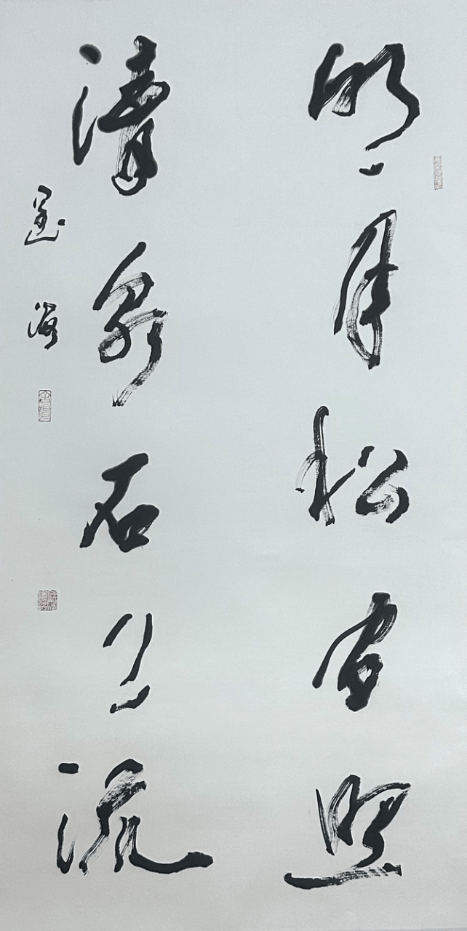 明月松间照
清泉石上流
墨海